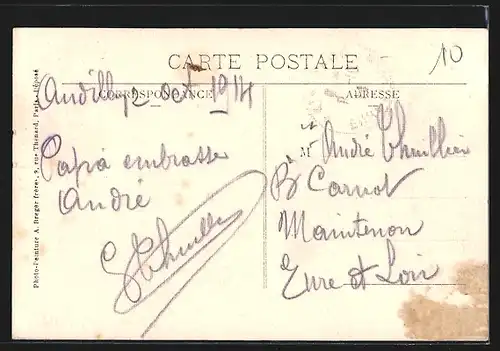 CARTE POSTALE
10
CORRESPONDANCE
ADRESSE
Andilly 2 Oct 1914
Papa embrasse
André
GThuillier
Mr André Thuillier
Bd Carnot
Maintenon
Eure et Loir
Photo-Peinture A. Breger frères, 9, rue Thénard, Paris. - Déposé